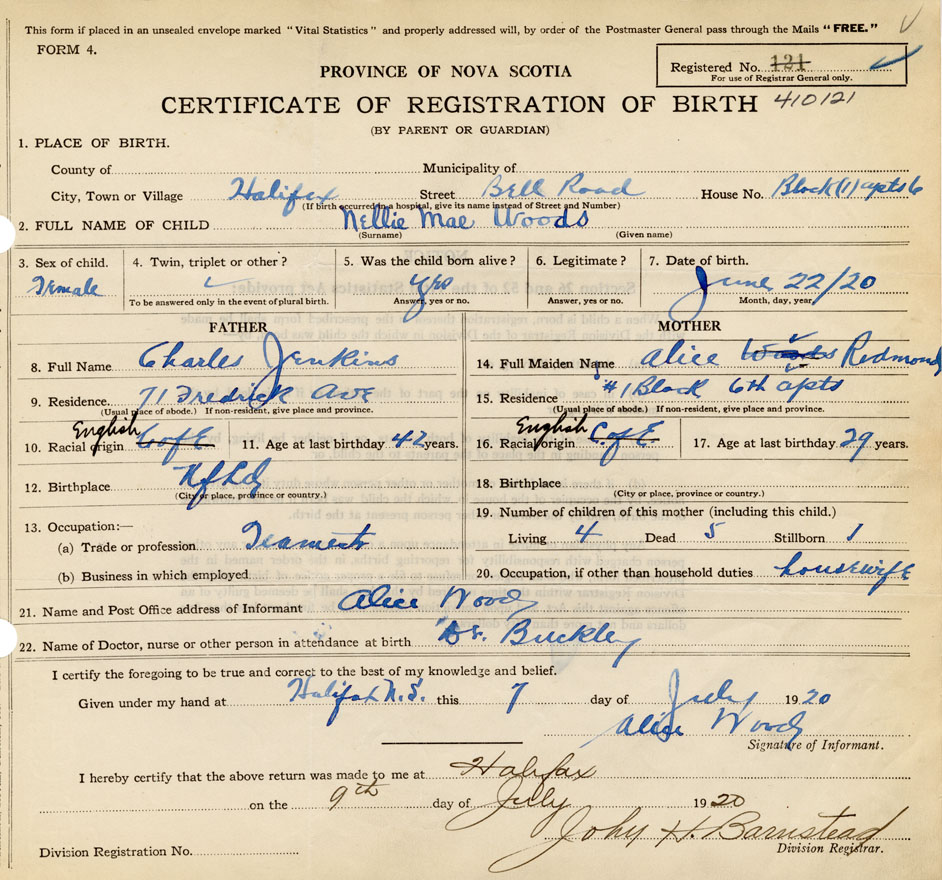 This form if placed in an unsealed envelope marked "Vital Statistics" and properly addressed will, by order of the Postmaster General pass through the Mails "FREE."
FORM 4.
Registered No. 121
For use of Registrar General only.
PROVINCE OF NOVA SCOTIA
CERTIFICATE OF REGISTRATION OF BIRTH 410121
(BY PARENT OR GUARDIAN)
1. PLACE OF BIRTH.
County of Municipality of
City, Town or Village Halifax Street Bell Road House No. Block (1) apts 6
(If birth occurred in a hospital, give its name instead of Street and Number)
2. FULL NAME OF CHILD Nellie Mae Woods
(Surname) (Given name)
3. Sex of child. 4. Twin, triplet or other? 5. Was the child born alive? 6. Legitimate? 7. Date of birth.
Female yes June 22/20
To be answered only in the event of plural birth. Answer, yes or no. Answer, yes or no. Month, day, year
FATHER MOTHER
8. Full Name Charles Jenkins 14. Full Maiden Name Alice Woods Redmond
9. Residence 71 Fredrick Ave 15. Residence #1 Block 6th apts
(Usual place of abode.) If non-resident, give place and province. (Usual place of abode.) If non-resident, give place and province.
English English
10. Racial origin C of E 11. Age at last birthday 42 years. 16. Racial origin C of E 17. Age at last birthday 29 years.
12. Birthplace Nfld 18. Birthplace
(City or place, province or country.) (City or place, province or country.)
13. Occupation:— 19. Number of children of this mother (including this child.)
(a) Trade or profession Living 4 Dead 5 Stillborn 1
(b) Business in which employed 20. Occupation, if other than household duties housewife
21. Name and Post Office address of Informant Alice Woods
22. Name of Doctor, nurse or other person in attendance at birth Dr. Buckley
I certify the foregoing to be true and correct to the best of my knowledge and belief.
Given under my hand at Halifax N.S. this 7 day of July 1920
Alice Woods
Signature of Informant.
I hereby certify that the above return was made to me at Halifax
on the 9th day of July 1920
John H. Barnstead
Division Registration No. Division Registrar.